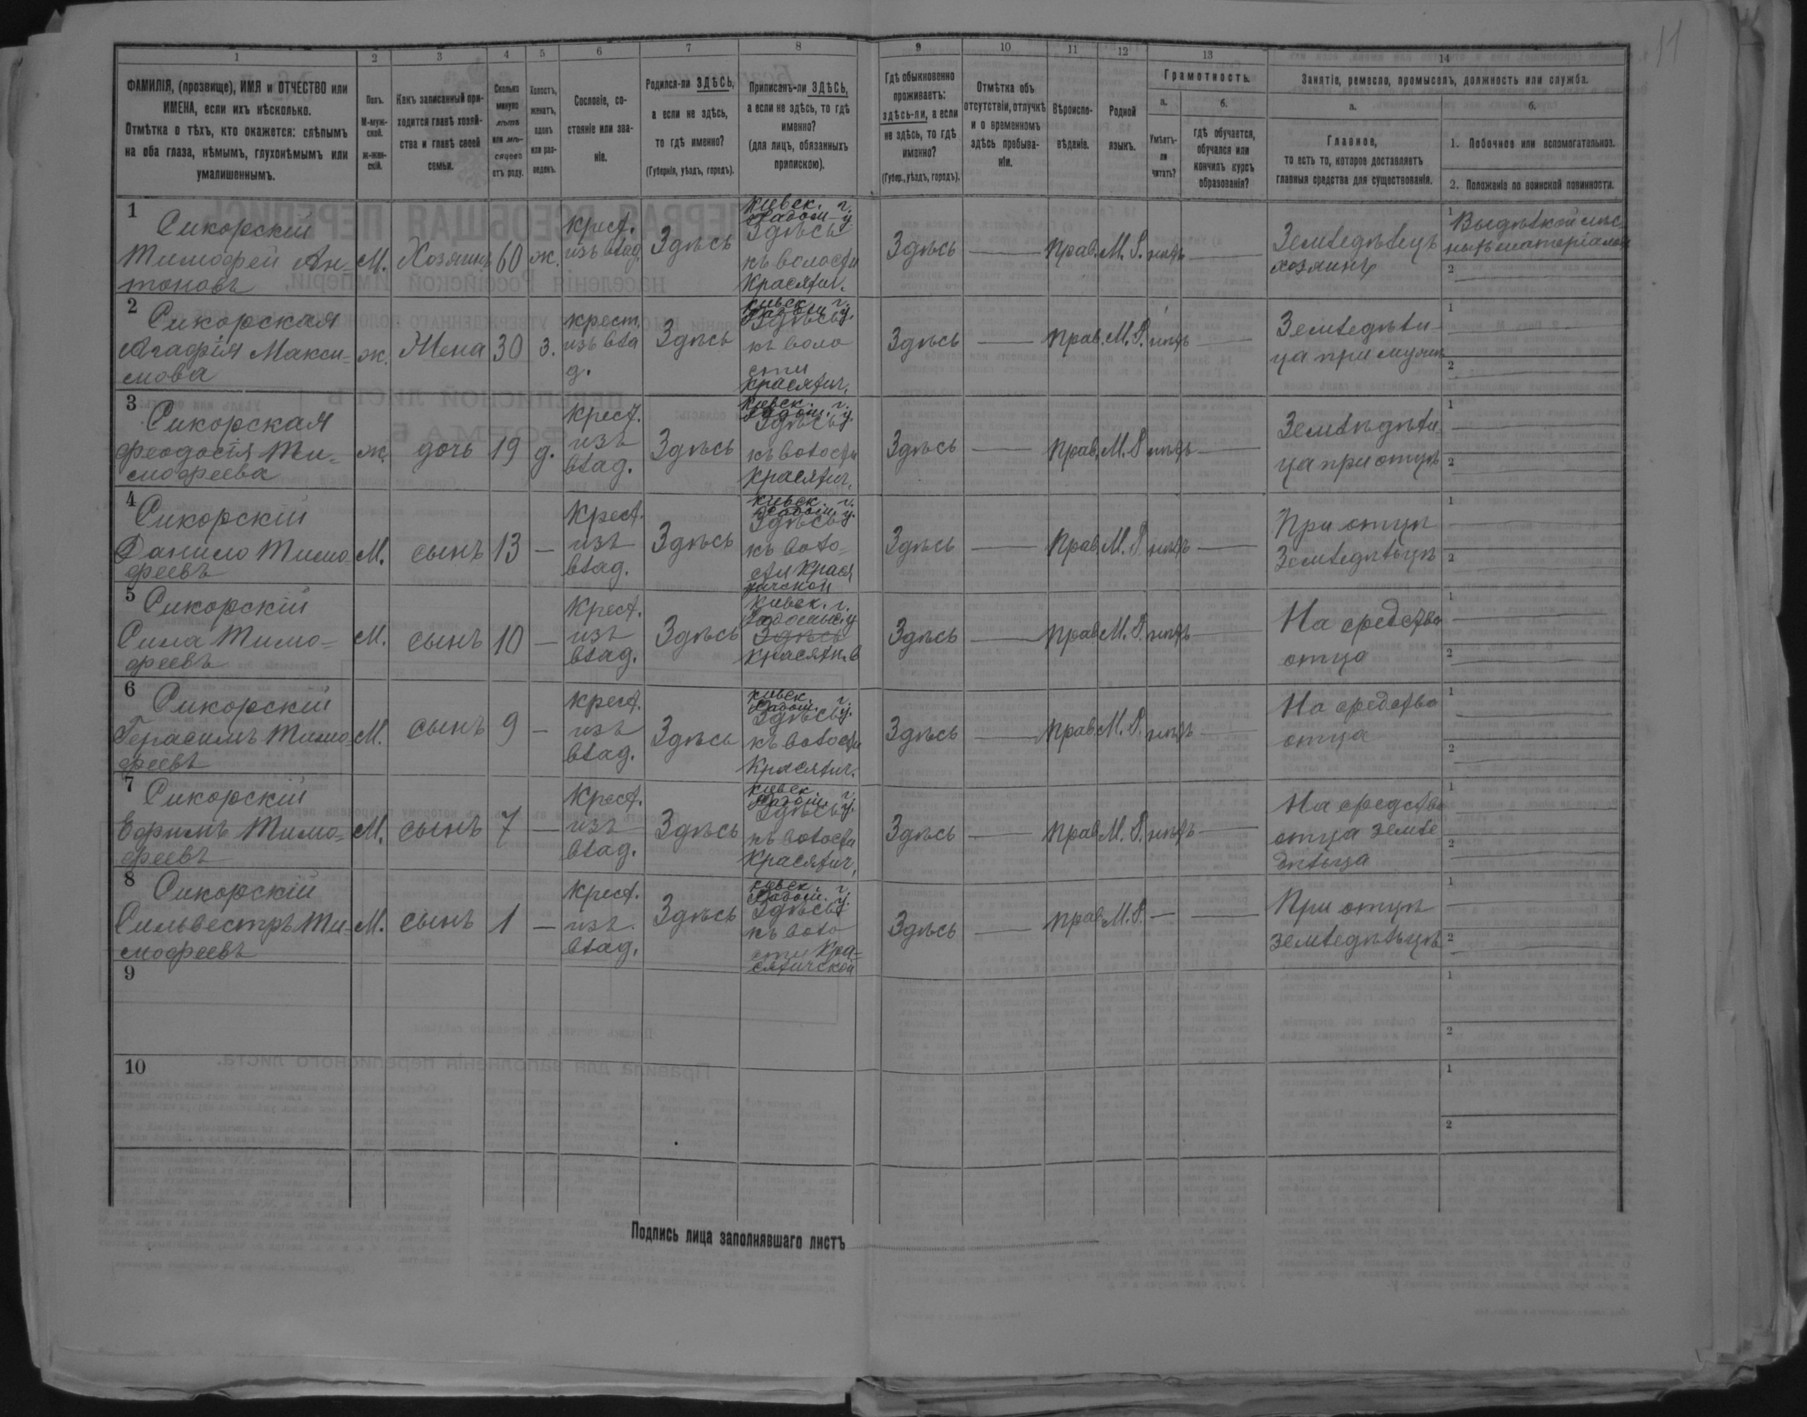 11
1 2 3 4 5 6 7 8 9 10 11 12 13 14
ФАМИЛІЯ, (прозвище), ИМЯ и ОТЧЕСТВО или
ИМЕНА, если ихъ нѣсколько.
Отмѣтка о тѣхъ, кто окажется: слѣпымъ
на оба глаза, нѣмымъ, глухонѣмымъ или
умалишеннымъ.
Полъ.
М-муж-
ской.
ж-жен-
скій.
Какъ записанный при-
ходится главѣ хозяй-
ства и главѣ своей
семьи.
Сколько
минуло
лѣтъ
или мѣ-
сяцевъ
отъ роду.
Холостъ,
женатъ,
вдовъ
или раз-
веденъ.
Сословіе, со-
стояніе или зва-
ніе.
Родился-ли ЗДѢСЬ,
а если не здѣсь,
то гдѣ именно?
(Губернія, уѣздъ, городъ).
Приписанъ-ли ЗДѢСЬ,
а если не здѣсь, то гдѣ
именно?
(для лицъ, обязанныхъ
припискою).
Гдѣ обыкновенно
проживаетъ:
здѣсь-ли, а если
не здѣсь, то гдѣ
именно?
(Губер., уѣздъ, городъ).
Отмѣтка объ
отсутствіи, отлучкѣ
и о временномъ
здѣсь пребыва-
ніи.
Вѣроиспо-
вѣданіе.
Родной
языкъ.
Грамотность.
а.
Умѣетъ-
ли
читать?
б.
гдѣ обучается,
обучался или
кончилъ курсъ
образованія?
Занятіе, ремесло, промыселъ, должность или служба.
а.
Главное,
то есть то, которое доставляетъ
главныя средства для существованія.
б.
1. Побочное или вспомогательное.
2. Положеніе по воинской повинности.
1
Сикорскій
Тимофей Ан-
тоновъ
М. Хозяинъ 60 ж.
Крест.
изъ влад.
Здѣсь
Кіевск. г.
Радом. у.
Здѣсь
къ волости
Красятич.
Здѣсь — Прав. М. Р. нѣтъ —
Земледѣлецъ
хозяинъ
1
2
2
Сикорская
Агафія Макси-
мова
ж. Жена 30 з.
крест.
изъ вла
д.
Здѣсь
Кіевск. г.
Радом. у.
Здѣсь
къ воло
сти
Красятич.
Здѣсь — Прав. М. Р. нѣтъ —
Земледѣли-
ца при мужѣ
1
2
3
Сикорская
Феодосія Ти-
мофеева
ж. дочь 19 д.
Крест.
изъ
влад.
Здѣсь
Кіевск. г.
Радом. у.
Здѣсь
къ волости
Красятич.
Здѣсь — Прав. М. Р. нѣтъ —
Земледѣли-
ца при отцѣ
1
2
4
Сикорскій
Данило Тимо
феевъ
М. сынъ 13 —
Крест.
изъ
влад.
Здѣсь
Кіевск. г.
Радом. у.
Здѣсь
къ воло-
сти Крася
тичской
Здѣсь — Прав. М. Р. нѣтъ —
При отцѣ
Земледѣльцѣ
1
2
5
Сикорскій
Сила Тимо-
феевъ
М. сынъ 10 —
Крест.
изъ
влад.
Здѣсь
Кіевск. г.
Здѣсь
Здѣсь — Прав. М. Р. нѣтъ —
На средства
отца
1
2
6
Сикорскій
Герасимъ Тимо-
феевъ
М. сынъ 9 —
Крест.
изъ
влад.
Здѣсь
Кіевск. г.
Радом. у.
Здѣсь
къ волости
Красятич.
Здѣсь — Прав. М. Р. нѣтъ —
На средства
отца
1
2
7
Сикорскій
Ефимъ Тимо-
феевъ
М. сынъ 7 —
Крест.
изъ
влад.
Здѣсь
Кіевск. г.
Радом. у.
Здѣсь
къ волости
Красятич.
Здѣсь — Прав. М. Р. нѣтъ —
На средства
отца земле
дѣльца
1
2
8
Сикорскій
Сильвестръ Ти
мофеевъ
М. сынъ 1 —
Крест.
изъ
влад.
Здѣсь
Кіевск. г.
Радом. у.
Здѣсь
къ воло
сти Кра-
сятичской
Здѣсь — Прав. М. Р. — —
При отцѣ
земледѣльцѣ
1
2
9
1
2
10
1
2
Подпись лица заполнявшаго листъ